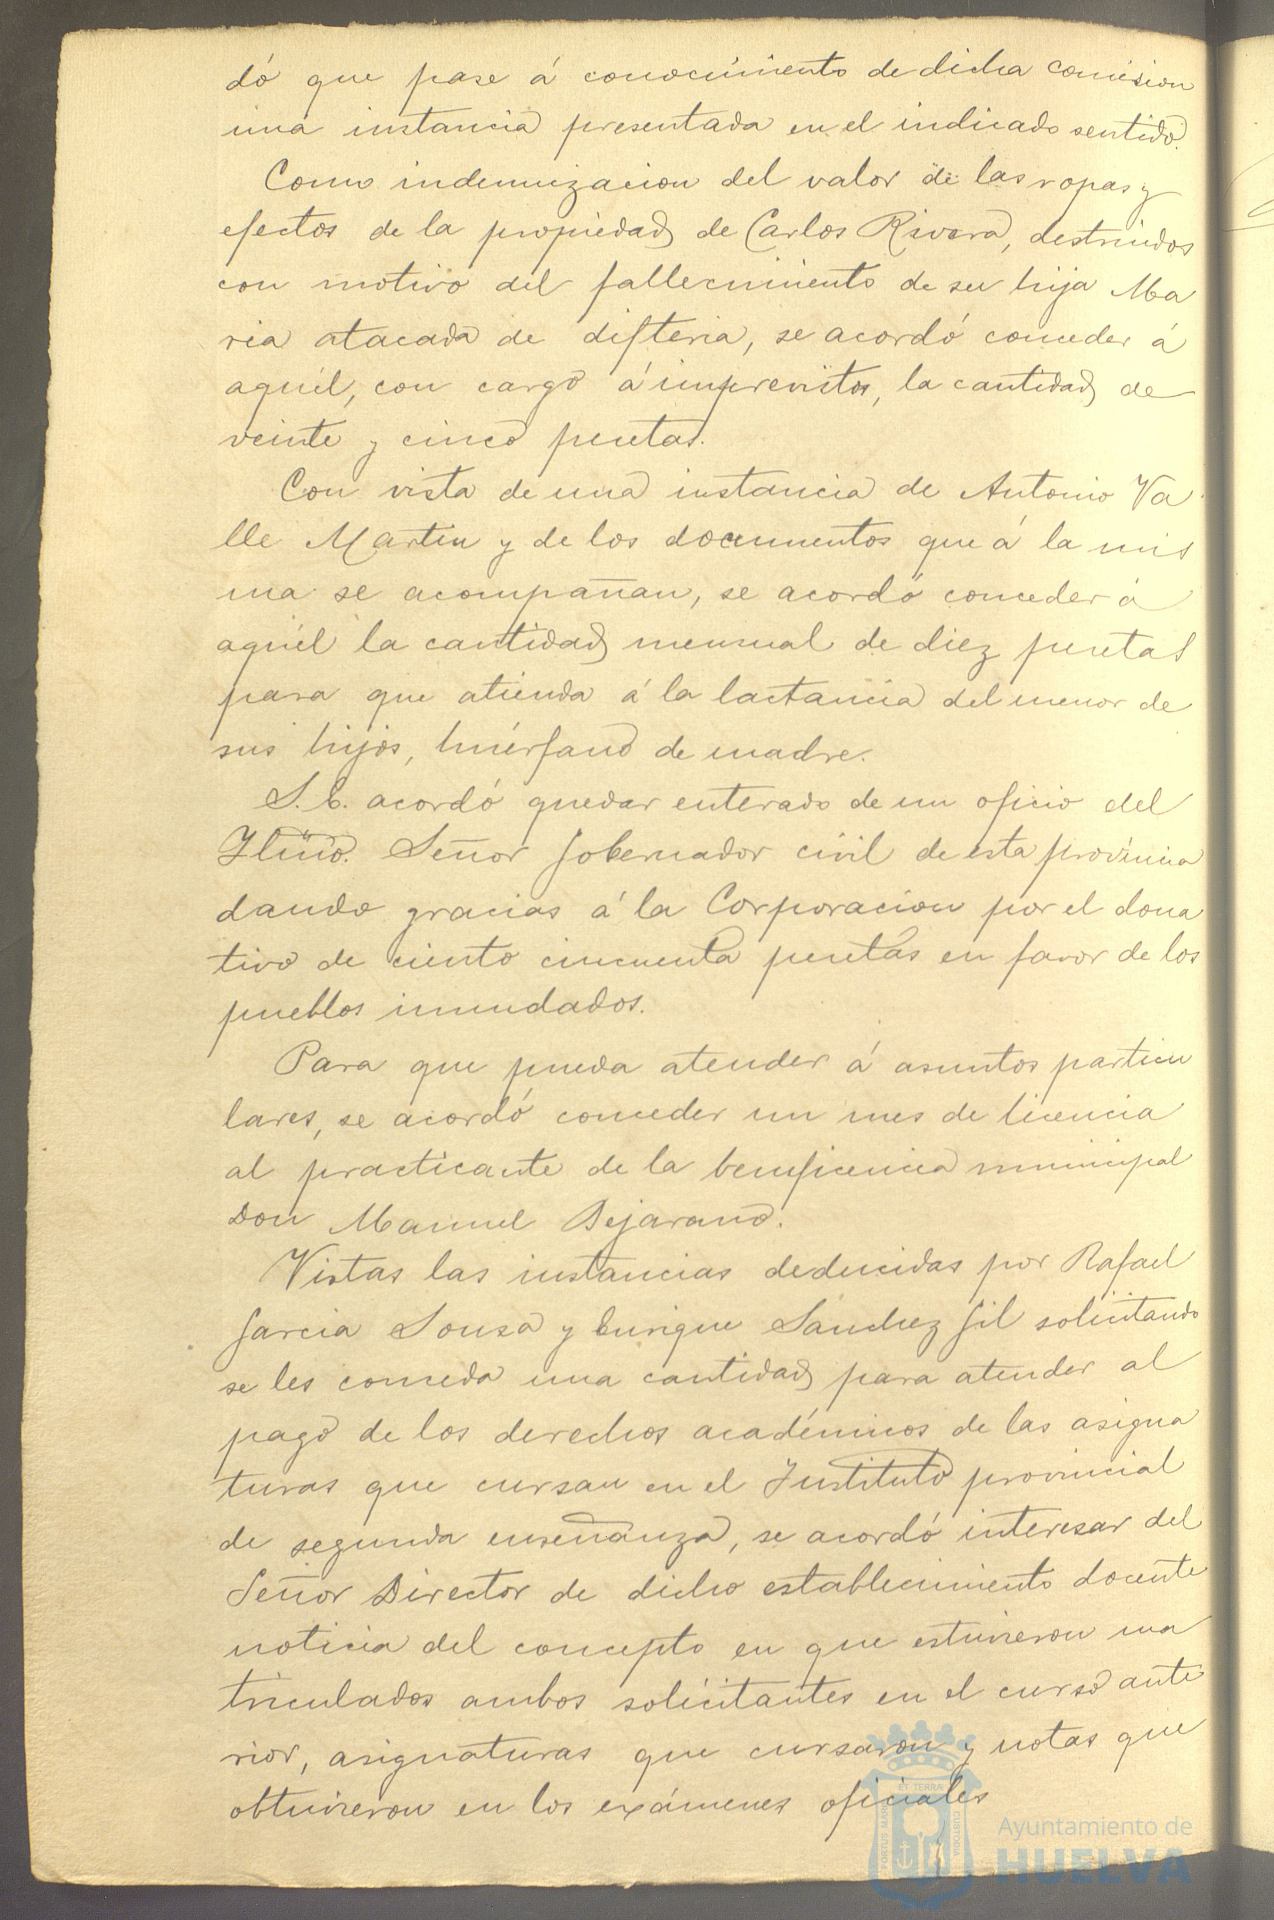 dó que pase á conocimiento de dicha comision
una instancia presentada en el indicado sentido.
Como indemnizacion del valor de las ropas y
efectos de la propiedad de Carlos Rivera, destruidos
con motivo del fallecimiento de su hija Ma
ria atacada de difteria, se acordó conceder á
aquél, con cargo á imprevistos, la cantidad de
veinte y cinco pesetas.
Con vista de una instancia de Antonio Va
lle Martin y de los documentos que á la mis
ma se acompañan, se acordó conceder á
aquél la cantidad mensual de diez pesetas
para que atienda á la lactancia del menor de
sus hijos, huérfano de madre.
S. E. acordó quedar enterado de un oficio del
Iltmo. Señor Gobernador civil de esta provincia
dando gracias á la Corporacion por el dona
tivo de ciento cincuenta pesetas en favor de los
pueblos inundados.
Para que pueda atender á asuntos particu
lares, se acordó conceder un mes de licencia
al practicante de la beneficencia municipal
Don Manuel Bejarano.
Vistas las instancias deducidas por Rafael
Garcia Sousa y Enrique Sanchez Gil solicitando
se les conceda una cantidad para atender al
pago de los derechos académicos de las asigna
turas que cursan en el Instituto provincial
de segunda enseñanza, se acordó interesar del
Señor Director de dicho establecimiento docente
noticia del concepto en que estuvieron ma
triculados ambos solicitantes en el curso ante
rior, asignaturas que cursaron y notas que
obtuvieron en los exámenes oficiales
PORTUS MARIS ET TERRAE CUSTODIA
Ayuntamiento de
HUELVA